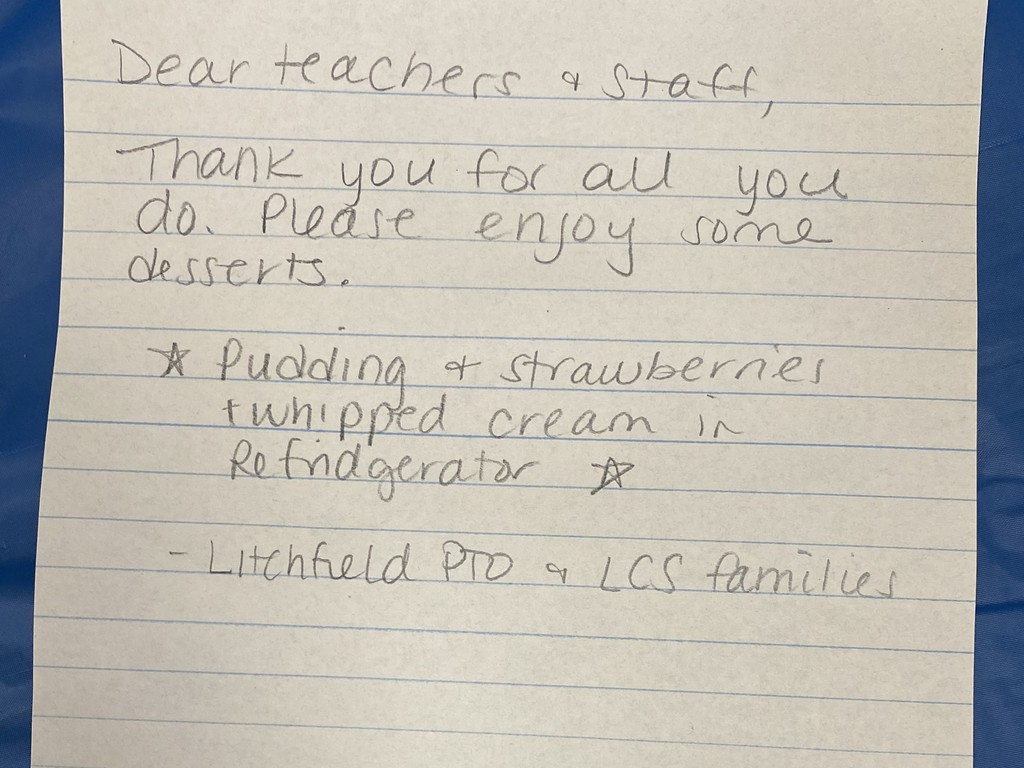 Dear teachers & staff,
Thank you for all you
do. Please enjoy some
desserts.
☆ Pudding & strawberries
+ whipped cream in
Refridgerator ☆
- Litchfield PTO & LCS families